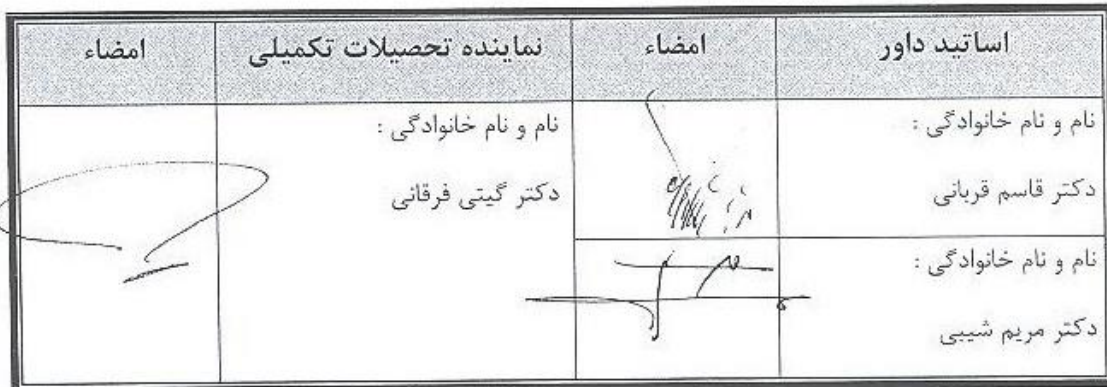 اساتید داور
امضاء
نماینده تحصیلات تکمیلی
امضاء
نام و نام خانوادگی :
دکتر قاسم قربانی
نام و نام خانوادگی :
دکتر گیتی فرقانی
نام و نام خانوادگی :
دکتر مریم شیبی